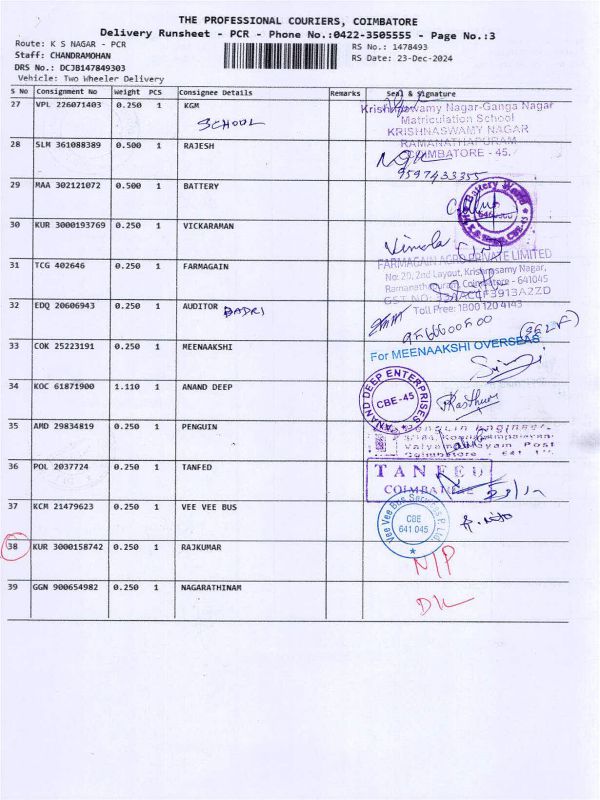 THE PROFESSIONAL COURIERS, COIMBATORE
Delivery Runsheet - PCR - Phone No.:0422-3505555 - Page No.:3
Route: K S NAGAR - PCR
RS No.: 1478493
Staff: CHANDRAMOHAN
RS Date: 23-Dec-2024
DRS No.: DCJB147849303
Vehicle: Two Wheeler Delivery
S No Consignment No Weight PCS Consignee Details Remarks Seal & Signature
27 VPL 226071403 0.250 1 KGM
SCHOOL
Krishnaswamy Nagar-Ganga Nagar
Matriculation School
KRISHNASWAMY NAGAR
RAMANATHAPURAM
COIMBATORE - 45.
28 SLM 361088389 0.500 1 RAJESH
9597433355
29 MAA 302121072 0.500 1 BATTERY
Battery World
30 KUR 3000193769 0.250 1 VICKARAMAN
Vimala
31 TCG 402646 0.250 1 FARMAGAIN
FARMAGAIN AGRO PRIVATE LIMITED
No:20, 2nd Layout, Krishnasamy Nagar,
Ramanathapuram, Coimbatore - 641045
Toll Free: 1800 120 4143
32 EDQ 20606943 0.250 1 AUDITOR BADRI
33 COK 25223191 0.250 1 MEENAAKSHI
For MEENAAKSHI OVERSEAS
34 KOC 61871900 1.110 1 ANAND DEEP
ANAND DEEP ENTERPRISES
CBE-45
35 AMD 29834819 0.250 1 PENGUIN
36 POL 2037724 0.250 1 TANFED
TANFED
COIMBATORE
37 KCM 21479623 0.250 1 VEE VEE BUS
Vee Vee Bus Services P. Ltd.
CBE
641 045
38 KUR 3000158742 0.250 1 RAJKUMAR
N/P
39 GGN 900654982 0.250 1 NAGARATHINAM
DK